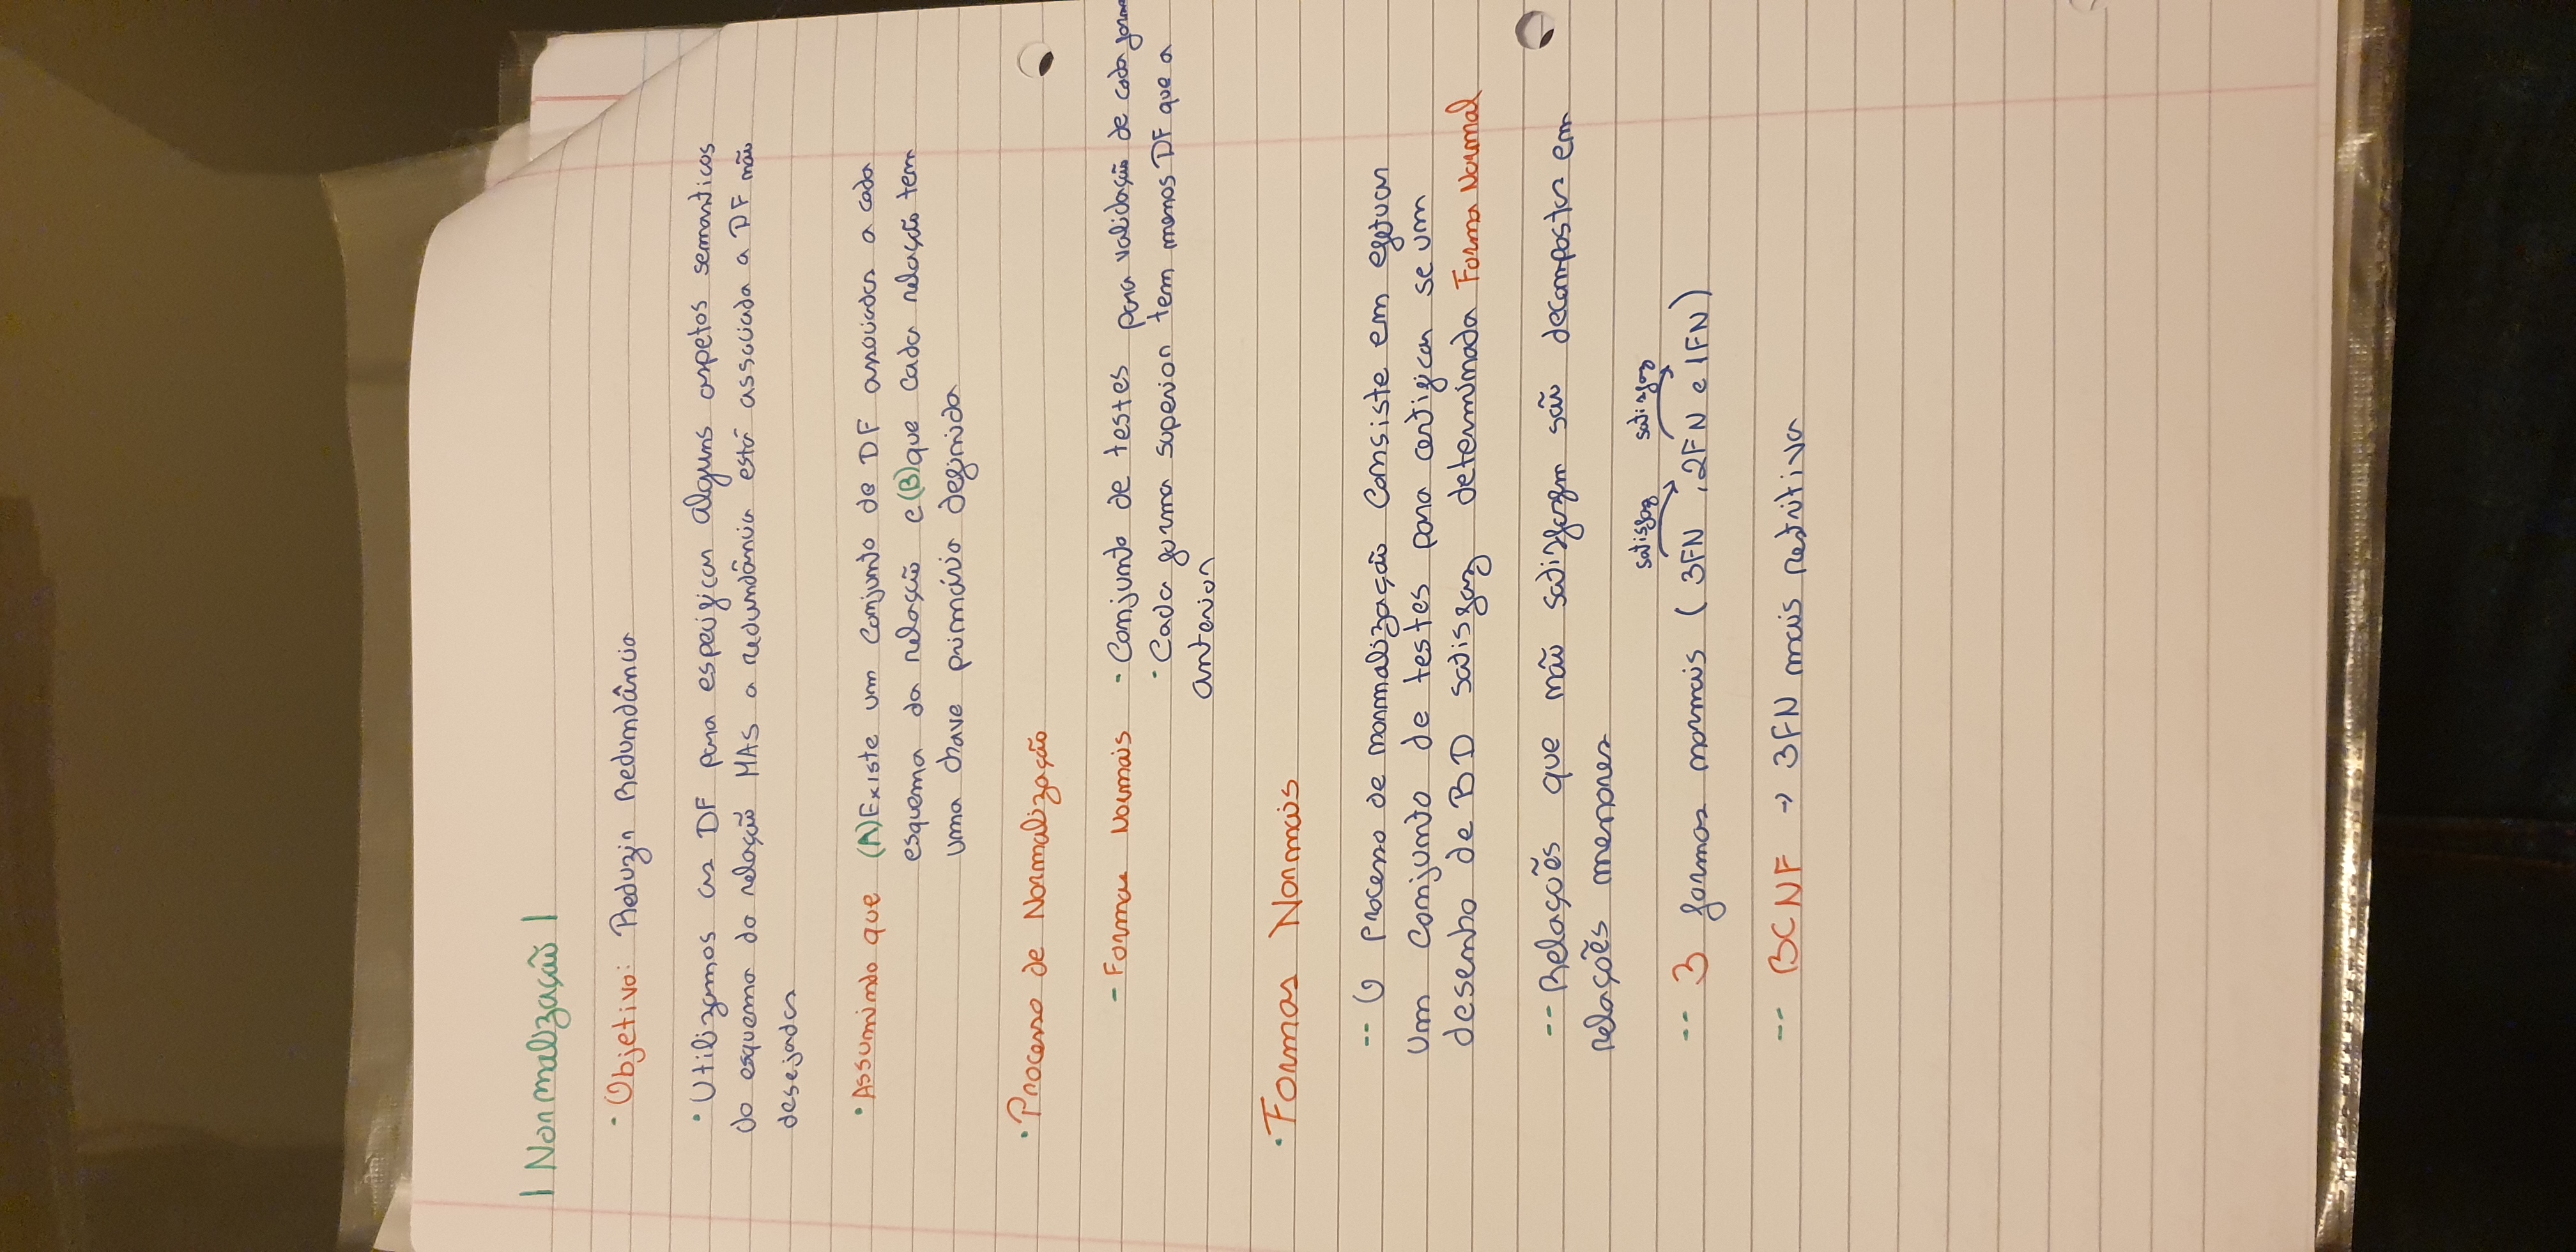 | Normalização |
· Objetivo: Reduzir Redundância
· Utilizamos as DF para especificar alguns aspetos semanticos
do esquema da relação MAS a redundância está associada a DF não
desejadas
· Assumindo que (A) Existe um conjunto de DF associadas a cada
esquema da relação e (B) que cada relação tem
uma chave primária definida
· Processo de Normalização
- Formas Normais - Conjunto de testes para validação de cada forma
· Cada forma superior tem menos DF que a
anterior
· Formas Normais
-- O processo de normalização consiste em efetuar
um conjunto de testes para certificar se um
desenho de BD satisfaz determinada Forma Normal
-- Relações que não satisfazem são decompostas em
relações menores
satisfaz satisfaz
-- 3 formas normais ( 3FN , 2FN e 1FN )
-- BCNF → 3FN mais restritiva